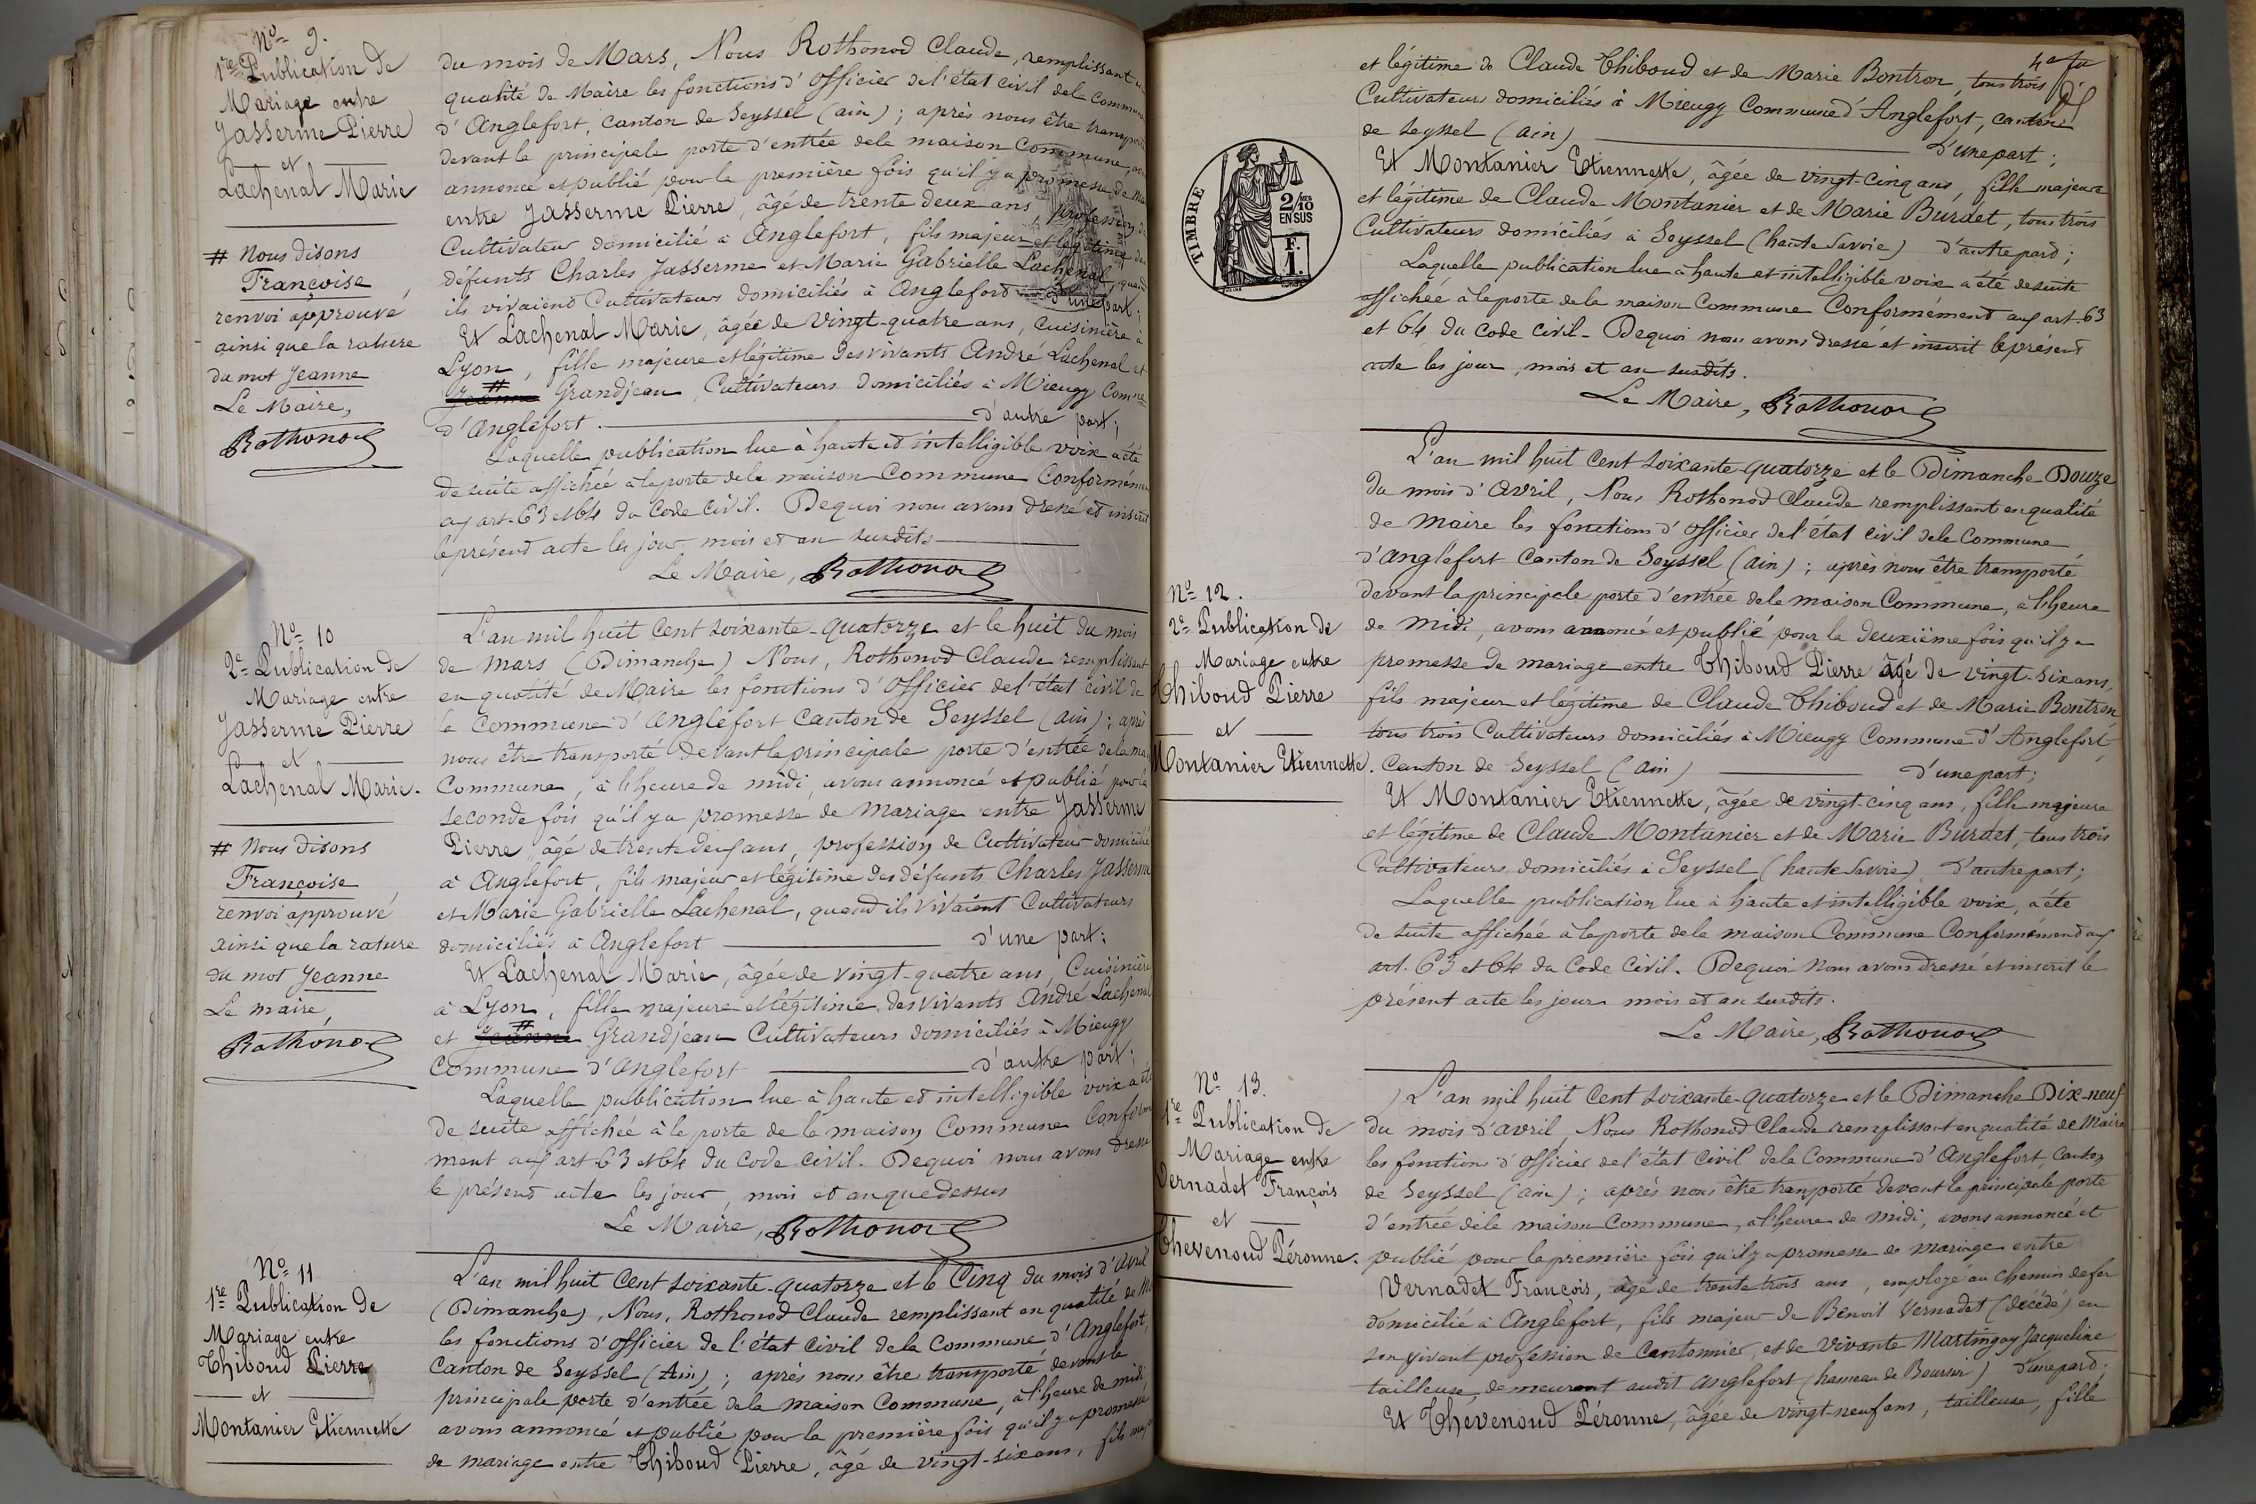 Nº 9.
1re Publication de
Mariage entre
Jasserme Pierre
et
Lachenal Marie
# Nous disons
Françoise
renvoi approuvé
ainsi que la rature
du mot Jeanne
Le Maire,
Rothonod
du mois de Mars, Nous Rothonod Claude, remplissant en
qualité de Maire les fonctions d'officier de l'état civil de la Commune
d'Anglefort, canton de Seyssel (ain) ; après nous être transporté
devant la principale porte d'entrée de la maison Commune, avons
annoncé et publié pour la première fois qu'il y a promesse de
entre Jasserme Pierre, âgé de trente deux ans, profession de
Cultivateur domicilié à Anglefort, fils majeur et légitime des
défunts Charles Jasserme et Marie Gabrielle Lachenal, quand
ils vivaient Cultivateurs domiciliés à Anglefort d'une part ;
Et Lachenal Marie, âgée de Vingt-quatre ans, Cuisinière à
Lyon, fille majeure et légitime des vivants André Lachenal et
# Jeanne Grandjean, Cultivateurs domiciliés à Mieugy Comne
d'Anglefort. d'autre part ;
Laquelle publication lue à haute et intelligible voix a été
de suite affichée à la porte de la maison Commune Conformément
aux art. 63 et 64 du Code Civil. Dequoi nous avons dressé et inscrit
le présent acte les jour mois et an susdits
Le Maire, Rothonod
Nº 10
2e Publication de
Mariage entre
Jasserme Pierre
et
Lachenal Marie.
# Nous disons
Françoise
renvoi approuvé
ainsi que la rature
du mot Jeanne
Le maire,
Rothonod
L'an mil huit Cent soixante-quatorze et le huit du mois
de Mars (Dimanche) Nous, Rothonod Claude remplissant
en qualité de Maire les fonctions d'officier de l'état civil de
la Commune d'Anglefort Canton de Seyssel (ain) ; après
nous être transporté devant la principale porte d'entrée de la
Commune, à l'heure de midi, avons annoncé et publié pour la
seconde fois qu'il y a promesse de Mariage entre Jasserme
Pierre âgé de trente deux ans, profession de Cultivateur domicilié
à Anglefort, fils majeur et légitime des défunts Charles Jasserme
et Marie Gabrielle Lachenal, quand ils vivaient Cultivateurs
domiciliés à Anglefort d'une part ;
Et Lachenal Marie, âgée de vingt-quatre ans, Cuisinière
à Lyon, fille majeure et légitime des vivants André Lachenal
et # Jeanne Grandjean Cultivateurs domiciliés à Mieugy
Commune d'Anglefort d'autre part ;
Laquelle publication lue à haute et intelligible voix a été
de suite affichée à la porte de la maison Commune Conformé
ment aux art 63 et 64 du Code Civil. Dequoi nous avons dressé
le présent acte les jour, mois et an que dessus
Le Maire, Rothonod
Nº 11
1re Publication de
Mariage entre
Thiboud Pierre
et
Montanier Etiennette
L'an mil huit Cent soixante-quatorze et le Cinq du mois d'avril
(Dimanche), Nous, Rothonod Claude remplissant en qualité de
les fonctions d'officier de l'état civil de la Commune d'Anglefort,
Canton de Seyssel (Ain) ; après nous être transporté devant la
principale porte d'entrée de la maison Commune, à l'heure de midi
avons annoncé et publié pour la première fois qu'il y a promesse
de mariage entre Thiboud Pierre, âgé de vingt-six ans, fils
et légitime de Claude Thiboud et de Marie Bontron, tous trois
Cultivateurs domiciliés à Mieugy Commune d'Anglefort, canton
de Seyssel (ain) d'une part ;
TIMBRE
2/10 EN SUS
F. 1.
Et Montanier Etiennette, âgée de vingt-cinq ans, fille majeure
et légitime de Claude Montanier et de Marie Burdet, tous trois
Cultivateurs domiciliés à Seyssel (haute Savoie) d'autre part ;
Laquelle publication lue à haute et intelligible voix a été de suite
affichée à la porte de la maison Commune Conformément aux art. 63
et 64 du Code Civil. Dequoi nous avons dressé et inscrit le présent
acte les jour, mois et an susdits.
Le Maire, Rothonod
Nº 12.
2e Publication de
Mariage entre
Thiboud Pierre
et
Montanier Etiennette.
L'an mil huit Cent soixante-quatorze et le Dimanche Douze
du mois d'Avril, Nous Rothonod Claude remplissant en qualité
de Maire les fonctions d'officier de l'état civil de la Commune
d'Anglefort Canton de Seyssel (ain) ; après nous être transporté
devant la principale porte d'entrée de la maison Commune, à l'heure
de Midi, avons annoncé et publié pour la deuxième fois qu'il y a
promesse de mariage entre Thiboud Pierre âgé de vingt-six ans,
fils majeur et légitime de Claude Thiboud et de Marie Bontron
tous trois Cultivateurs domiciliés à Mieugy Commune d'Anglefort,
Canton de Seyssel (ain) d'une part ;
Et Montanier Etiennette, âgée de vingt-cinq ans, fille majeure
et légitime de Claude Montanier et de Marie Burdet, tous trois
Cultivateurs domiciliés à Seyssel (haute Savoie), d'autre part ;
Laquelle publication lue à haute et intelligible voix, a été
de suite affichée à la porte de la maison Commune Conformément aux
art. 63 et 64 du Code Civil. Dequoi Nous avons dressé et inscrit le
présent acte les jour mois et an susdits.
Le Maire, Rothonod
Nº 13.
1re Publication de
Mariage entre
Vernadet François
et
Thevenoud Péronne.
L'an mil huit Cent soixante-quatorze et le Dimanche Dix-neuf
du mois d'avril, Nous Rothonod Claude remplissant en qualité de Maire
les fonctions d'officier de l'état civil de la Commune d'Anglefort, Canton
de Seyssel (ain) ; après nous être transporté devant la principale porte
d'entrée de la maison Commune, à l'heure de midi, avons annoncé et
publié pour la première fois qu'il y a promesse de mariage entre
Vernadet François, âgé de trente trois ans, employé au chemin de fer
domicilié à Anglefort, fils majeur de Benoit Vernadet (décédé) en
son vivant profession de Cantonnier, et de vivante Martingay Jacqueline
tailleuse, demeurant audit Anglefort (hameau de Boursin) d'une part ;
Et Thevenoud Péronne, âgée de vingt-neuf ans, tailleuse, fille